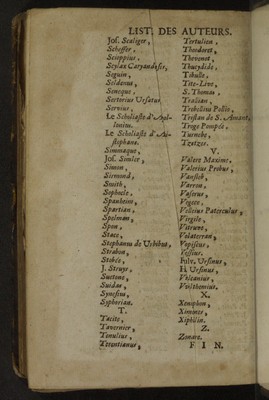 LIST. DES AUTEURS.
Jos. Scaliger,
Scheffer.
Scioppius,
Scylax Caryandesis,
Seguin,
Seldenus,
Seneque.
Sertorius Ursatus,
Servius.
Le Scholiaste d'Apol-
lonius.
Le Scholiaste d'Ari-
stophane.
Simmaque,
Jos. Simler,
Simon,
Sirmond,
Smith,
Sophocle,
Spanheim,
Spartian,
Spelman,
Spon,
Stace,
Stephanus de Urbibus,
Strabon,
Stobée,
J. Struys,
Suetone,
Suidas,
Synesius,
Sypherian.
T.
Tacite,
Tavernier,
Tenulius,
Terentianus,
Tertulien,
Theodoret,
Thevenot,
Thucydide,
Tibulle,
Tite-Live,
S. Thomas,
Tzalian,
Trebellius Pollio,
Tristan de S. Amant,
Trogo Pompée,
Turnebe,
Tzetzes.
V.
Valere Maxime,
Valerius Probus,
Vansleb,
Varron,
Vaserus,
Vegece,
Velleius Paterculus,
Virgile,
Vitruve,
Volaterran,
Vopiscus,
Vossius.
Fulv. Ursinus,
H. Ursinus,
Vulcanius,
X.
Xenophon,
Ximenes,
Xiphilin.
Z.
Zonare.
FIN.